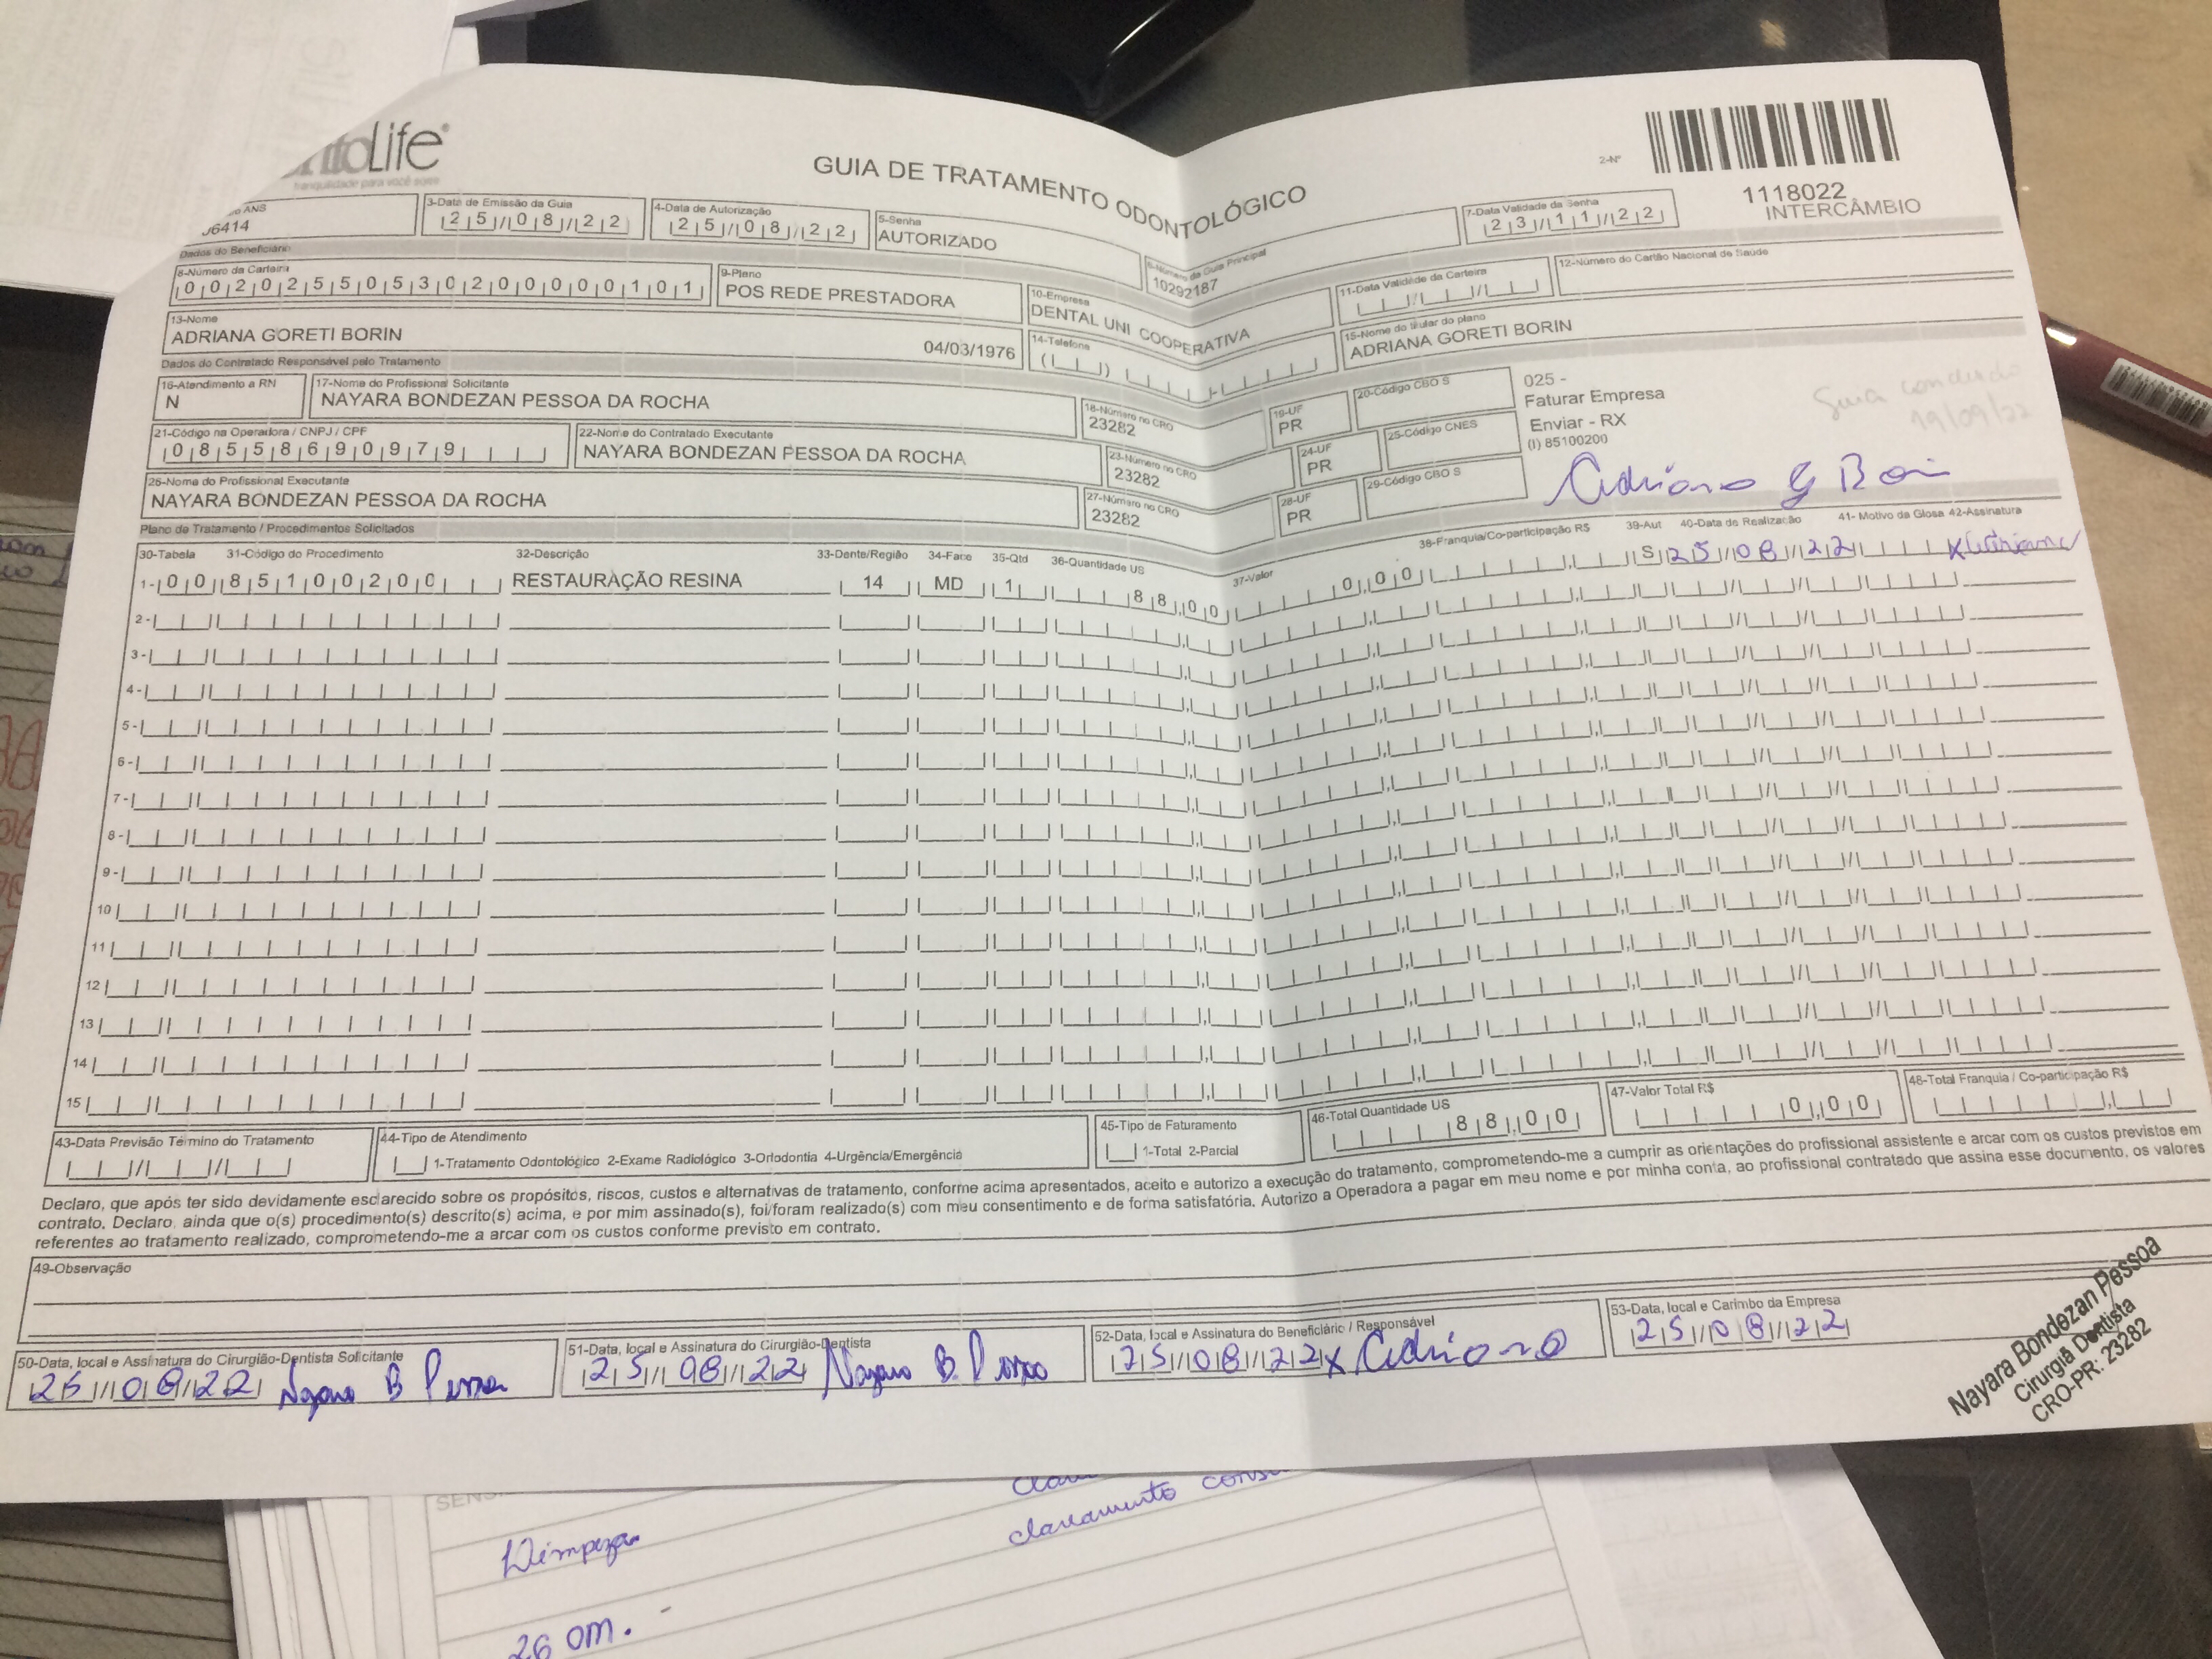 ntoLife®
tranquilidade para você sorrir
GUIA DE TRATAMENTO ODONTOLÓGICO
2-Nº
1118022
INTERCÂMBIO
ANS
06414
3-Data de Emissão da Guia
25/08/22
4-Data de Autorização
25/08/22
5-Senha
AUTORIZADO
6-Número da Guia Principal
10292187
7-Data Validade da Senha
23/11/22
Dados do Beneficiário
8-Número da Carteira
00202550530200000101
9-Plano
POS REDE PRESTADORA
10-Empresa
DENTAL UNI COOPERATIVA
11-Data Validade da Carteira
12-Número do Cartão Nacional de Saúde
13-Nome
ADRIANA GORETI BORIN 04/03/1976
14-Telefone
15-Nome do titular do plano
ADRIANA GORETI BORIN
Dados do Contratado Responsável pelo Tratamento
16-Atendimento a RN
N
17-Nome do Profissional Solicitante
NAYARA BONDEZAN PESSOA DA ROCHA
18-Número no CRO
23282
19-UF
PR
20-Código CBO S
025 -
Faturar Empresa
Enviar - RX
(I) 85100200
Guia
19/09/22
21-Código na Operadora / CNPJ / CPF
08558690979
22-Nome do Contratado Executante
NAYARA BONDEZAN PESSOA DA ROCHA
23-Número no CRO
23282
24-UF
PR
25-Código CNES
26-Nome do Profissional Executante
NAYARA BONDEZAN PESSOA DA ROCHA
27-Número no CRO
23282
28-UF
PR
29-Código CBO S
Adriana G Bori
Plano de Tratamento / Procedimentos Solicitados
30-Tabela 31-Código do Procedimento 32-Descrição 33-Dente/Região 34-Face 35-Qtd 36-Quantidade US 37-Valor 38-Franquia/Co-participação R$ 39-Aut 40-Data de Realização 41- Motivo da Glosa 42-Assinatura
1- 00 85100200 RESTAURAÇÃO RESINA 14 MD 1 88,00 0,00 S 25/08/22 x Adriana
2-
3-
4-
5-
6-
7-
8-
9-
10
11
12
13
14
15
43-Data Previsão Término do Tratamento
44-Tipo de Atendimento
1-Tratamento Odontológico 2-Exame Radiológico 3-Ortodontia 4-Urgência/Emergência
45-Tipo de Faturamento
1-Total 2-Parcial
46-Total Quantidade US
88,00
47-Valor Total R$
0,00
48-Total Franquia / Co-participação R$
Declaro, que após ter sido devidamente esclarecido sobre os propósitos, riscos, custos e alternativas de tratamento, conforme acima apresentados, aceito e autorizo a execução do tratamento, comprometendo-me a cumprir as orientações do profissional assistente e arcar com os custos previstos em
contrato. Declaro, ainda que o(s) procedimento(s) descrito(s) acima, e por mim assinado(s), foi/foram realizado(s) com meu consentimento e de forma satisfatória. Autorizo a Operadora a pagar em meu nome e por minha conta, ao profissional contratado que assina esse documento, os valores
referentes ao tratamento realizado, comprometendo-me a arcar com os custos conforme previsto em contrato.
49-Observação
50-Data, local e Assinatura do Cirurgião-Dentista Solicitante
25/08/22 Nayara B Pessoa
51-Data, local e Assinatura do Cirurgião-Dentista
25/08/22 Nayara B. Pessoa
52-Data, local e Assinatura do Beneficiário / Responsável
25/08/22 x Adriana
53-Data, local e Carimbo da Empresa
25/08/22
Nayara Bondezan Pessoa
Cirurgiã Dentista
CRO-PR: 23282
clareamento
Limpeza
26 OM. -